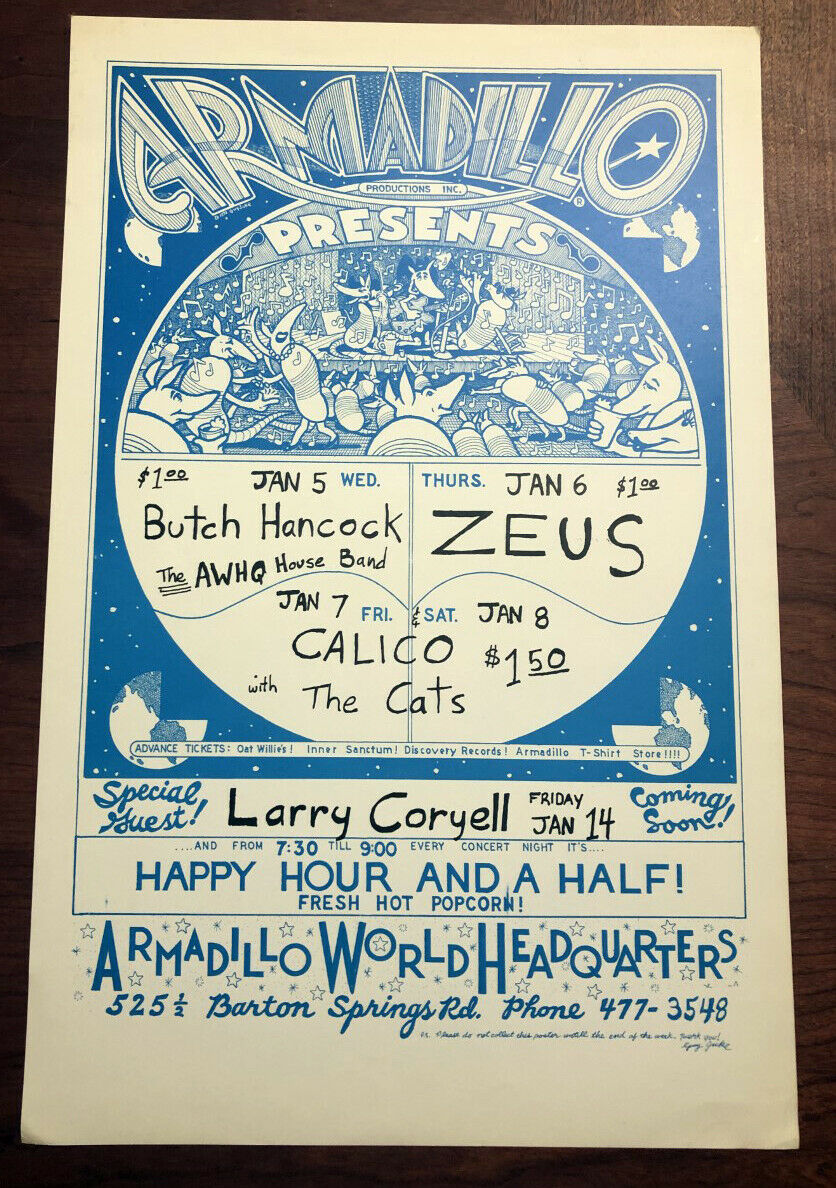 ARMADILLO
PRODUCTIONS INC.
®
PRESENTS
$1.00 JAN 5 WED.
Butch Hancock
The AWHQ House Band
THURS. JAN 6 $1.00
ZEUS
JAN 7 FRI. & SAT. JAN 8
CALICO $1.50
with The Cats
ADVANCE TICKETS: Oat Willie's! Inner Sanctum! Discovery Records! Armadillo T-Shirt Store!!!!
Special Guest! Larry Coryell FRIDAY JAN 14 Coming Soon!
....AND FROM 7:30 TILL 9:00 EVERY CONCERT NIGHT IT'S....
HAPPY HOUR AND A HALF!
FRESH HOT POPCORN!
ARMADILLO WORLD HEADQUARTERS
525 1/2 Barton Springs Rd. Phone 477-3548
P.S. Please do not collect this poster untill the end of the week. Thank you!